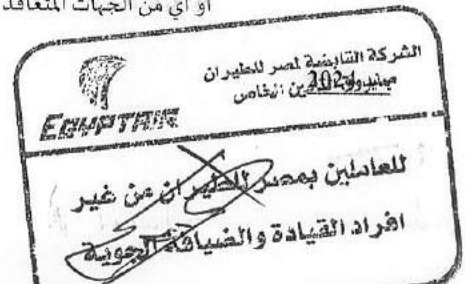 او اي من الجهات المتعاقد
الشركة القابضة لمصر للطيران
2024
صندوق التأمين الخاص
EGYPTAIR
للعاملين بمصر للطيران من غير
افراد القيادة والضيافة الجوية